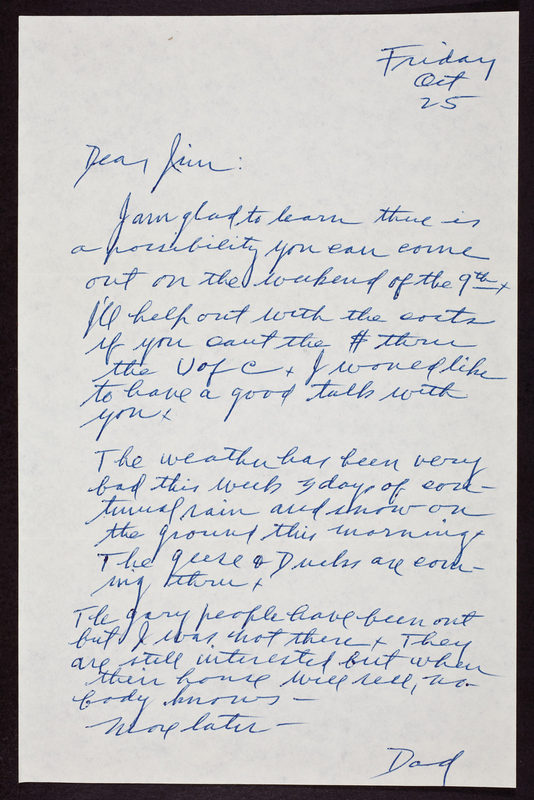 Friday
Oct
25
Dear Jim:
I am glad to learn there is
a possibility you can come
out on the weekend of the 9th x
I'll help out with the costs
if you can't the # thru
the U of C x I would like
to have a good talk with
you x
The weather has been very
bad this week 3 days of con-
tinual rain and snow on
the ground this morning x
The geese & Ducks are com-
ing thru x
The Gary people have been out
but I was not there x They
are still interested but when
their house will sell, no-
body knows —
More later —
Dad